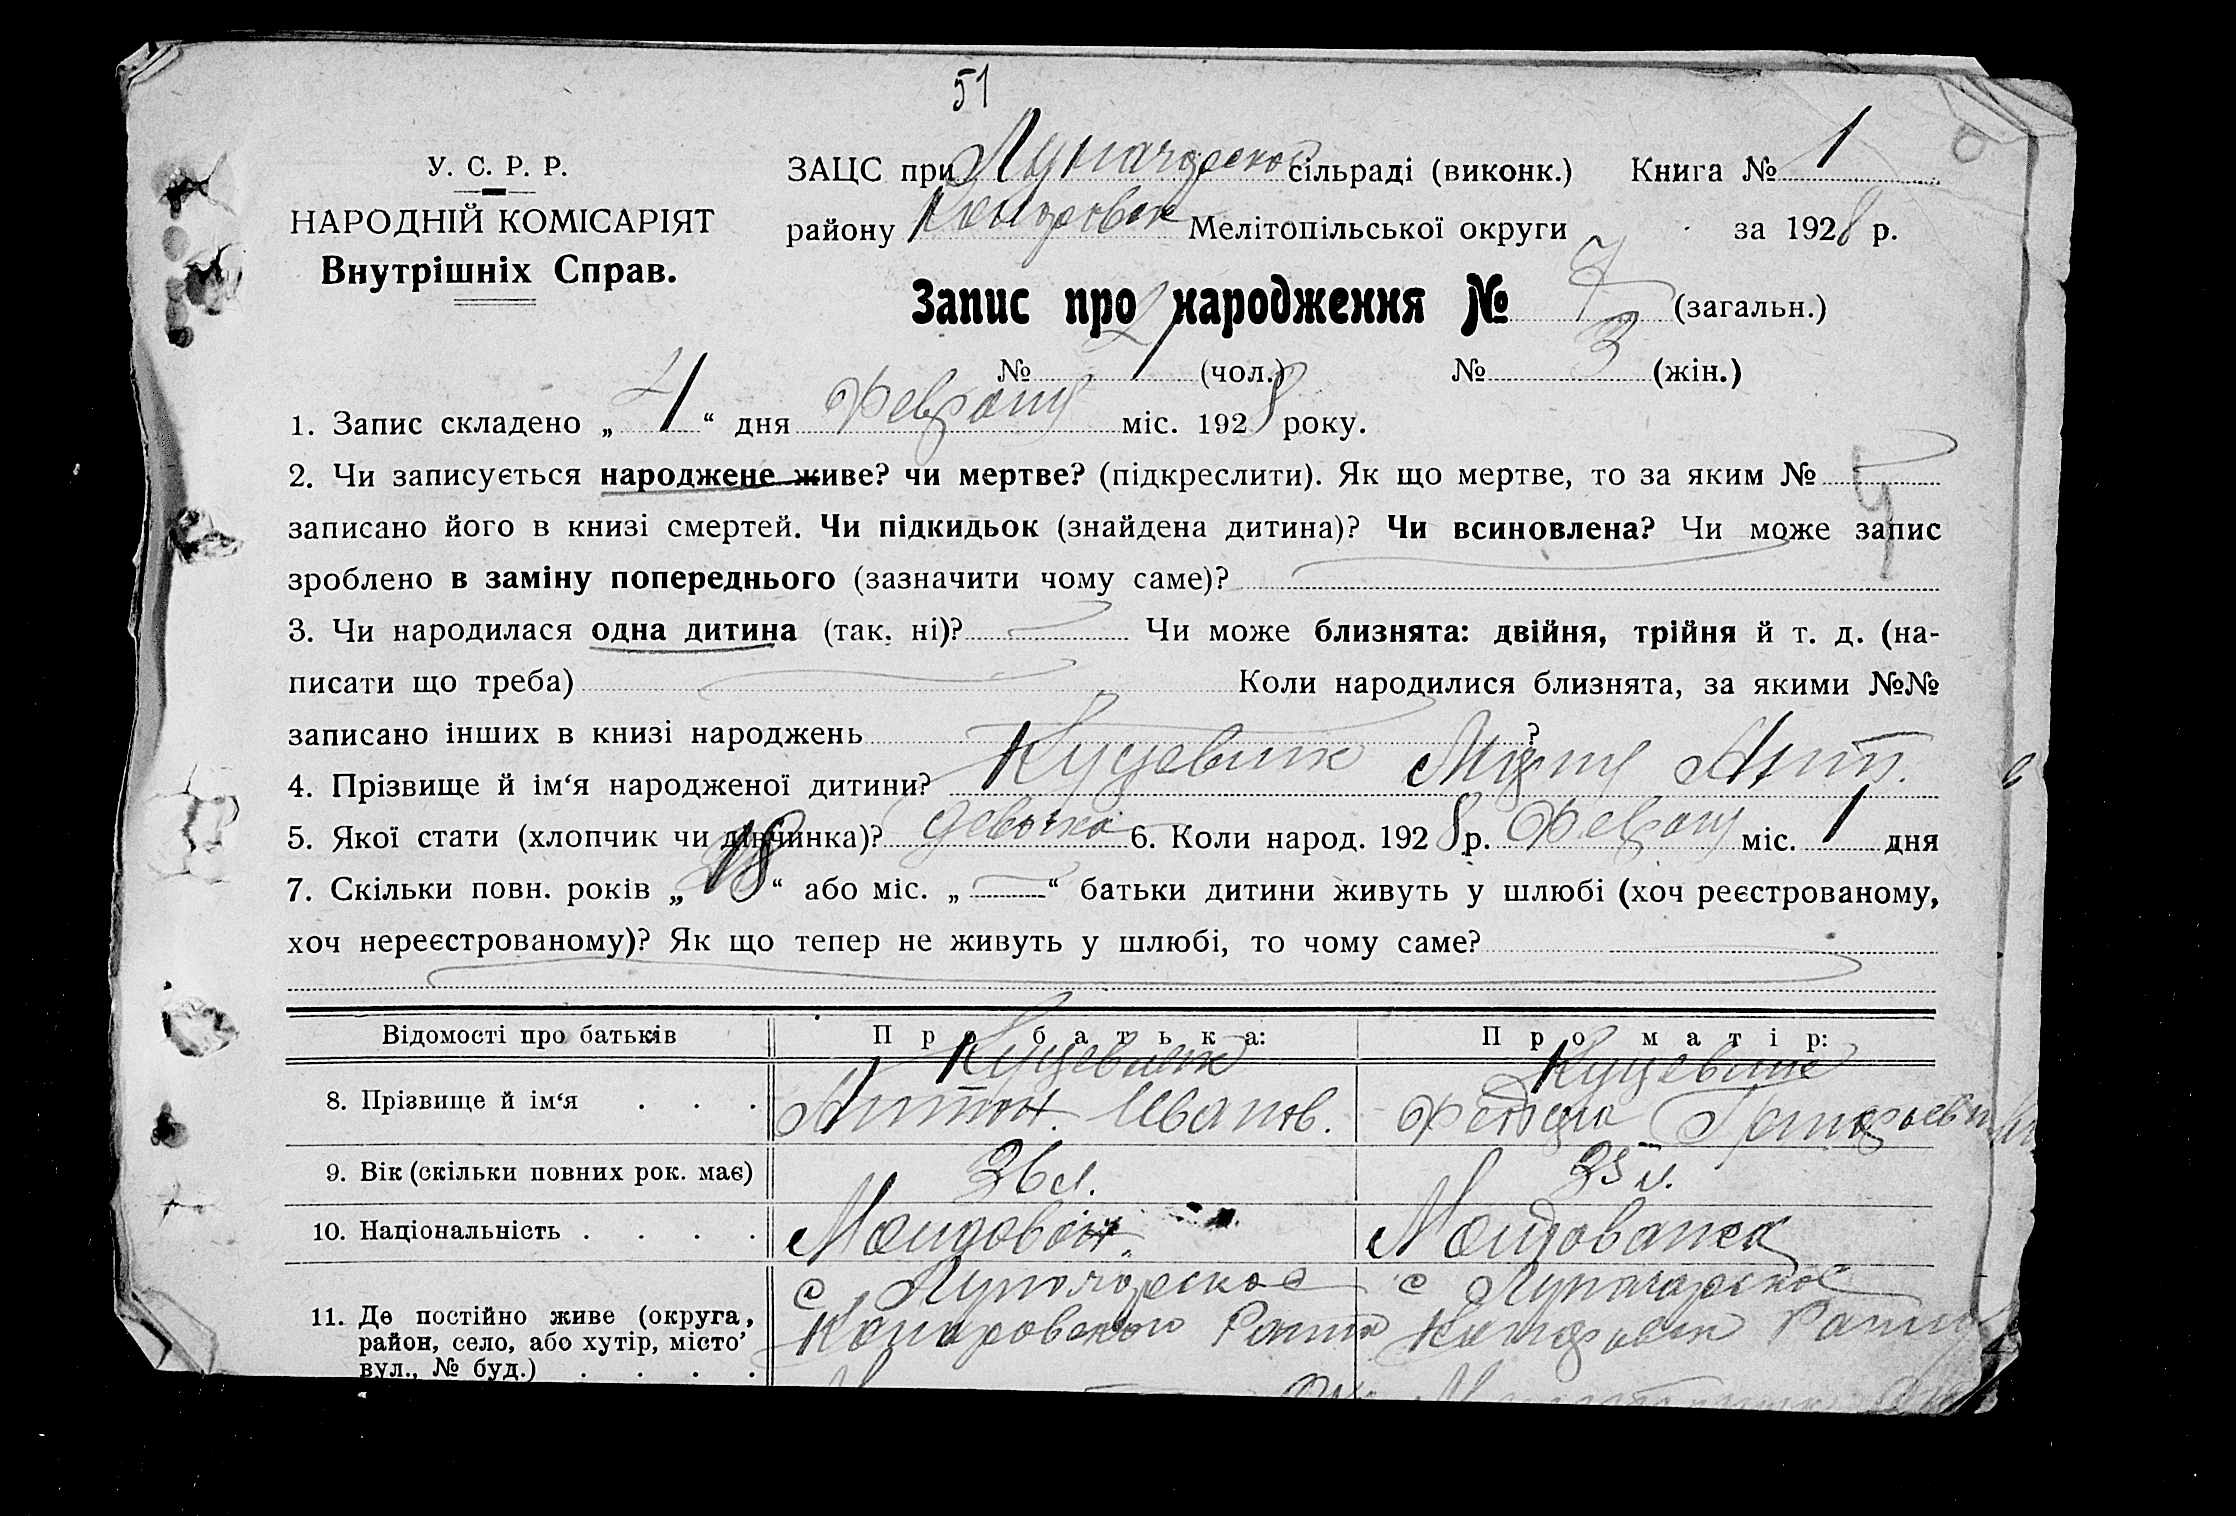 51
У. С. Р. Р.
НАРОДНІЙ КОМІСАРІЯТ
Внутрішніх Справ.
ЗАЦС при Луначарской сільраді (виконк.) Книга № 1
району Мелітопільської округи за 1928 р.
Запис про народження № 7 (загальн.)
№ (чол.) № 3 (жін.)
1. Запис складено „ “ дня Февраля міс. 1928 року.
2. Чи записується народжене живе? чи мертве? (підкреслити). Як що мертве, то за яким №
записано його в книзі смертей. Чи підкидьок (знайдена дитина)? Чи всиновлена? Чи може запис
зроблено в заміну попереднього (зазначити чому саме)?
3. Чи народилася одна дитина (так, ні)? Чи може близнята: двійня, трійня й т. д. (на-
писати що треба) Коли народилися близнята, за якими №№
записано інших в книзі народжень ?
4. Прізвище й ім‘я народженої дитини? Мария Ант.
5. Якої стати (хлопчик чи дівчинка)? девочка 6. Коли народ. 1928 р. Февраля міс. 1 дня
7. Скільки повн. років „18“ або міс. „ “ батьки дитини живуть у шлюбі (хоч реєстрованому,
хоч нереєстрованому)? Як що тепер не живуть у шлюбі, то чому саме?
Відомості про батьків Про батька: Про матір:
8. Прізвище й ім‘я . . . Антон Иванов.
9. Вік (скільки повних рок. має) 36 л. 35 л.
10. Національність . . . . Молдован Молдованка
11. Де постійно живе (округа, с Луначарское с Луначарское
район, село, або хутір, місто’
вул., № буд.) . . . .